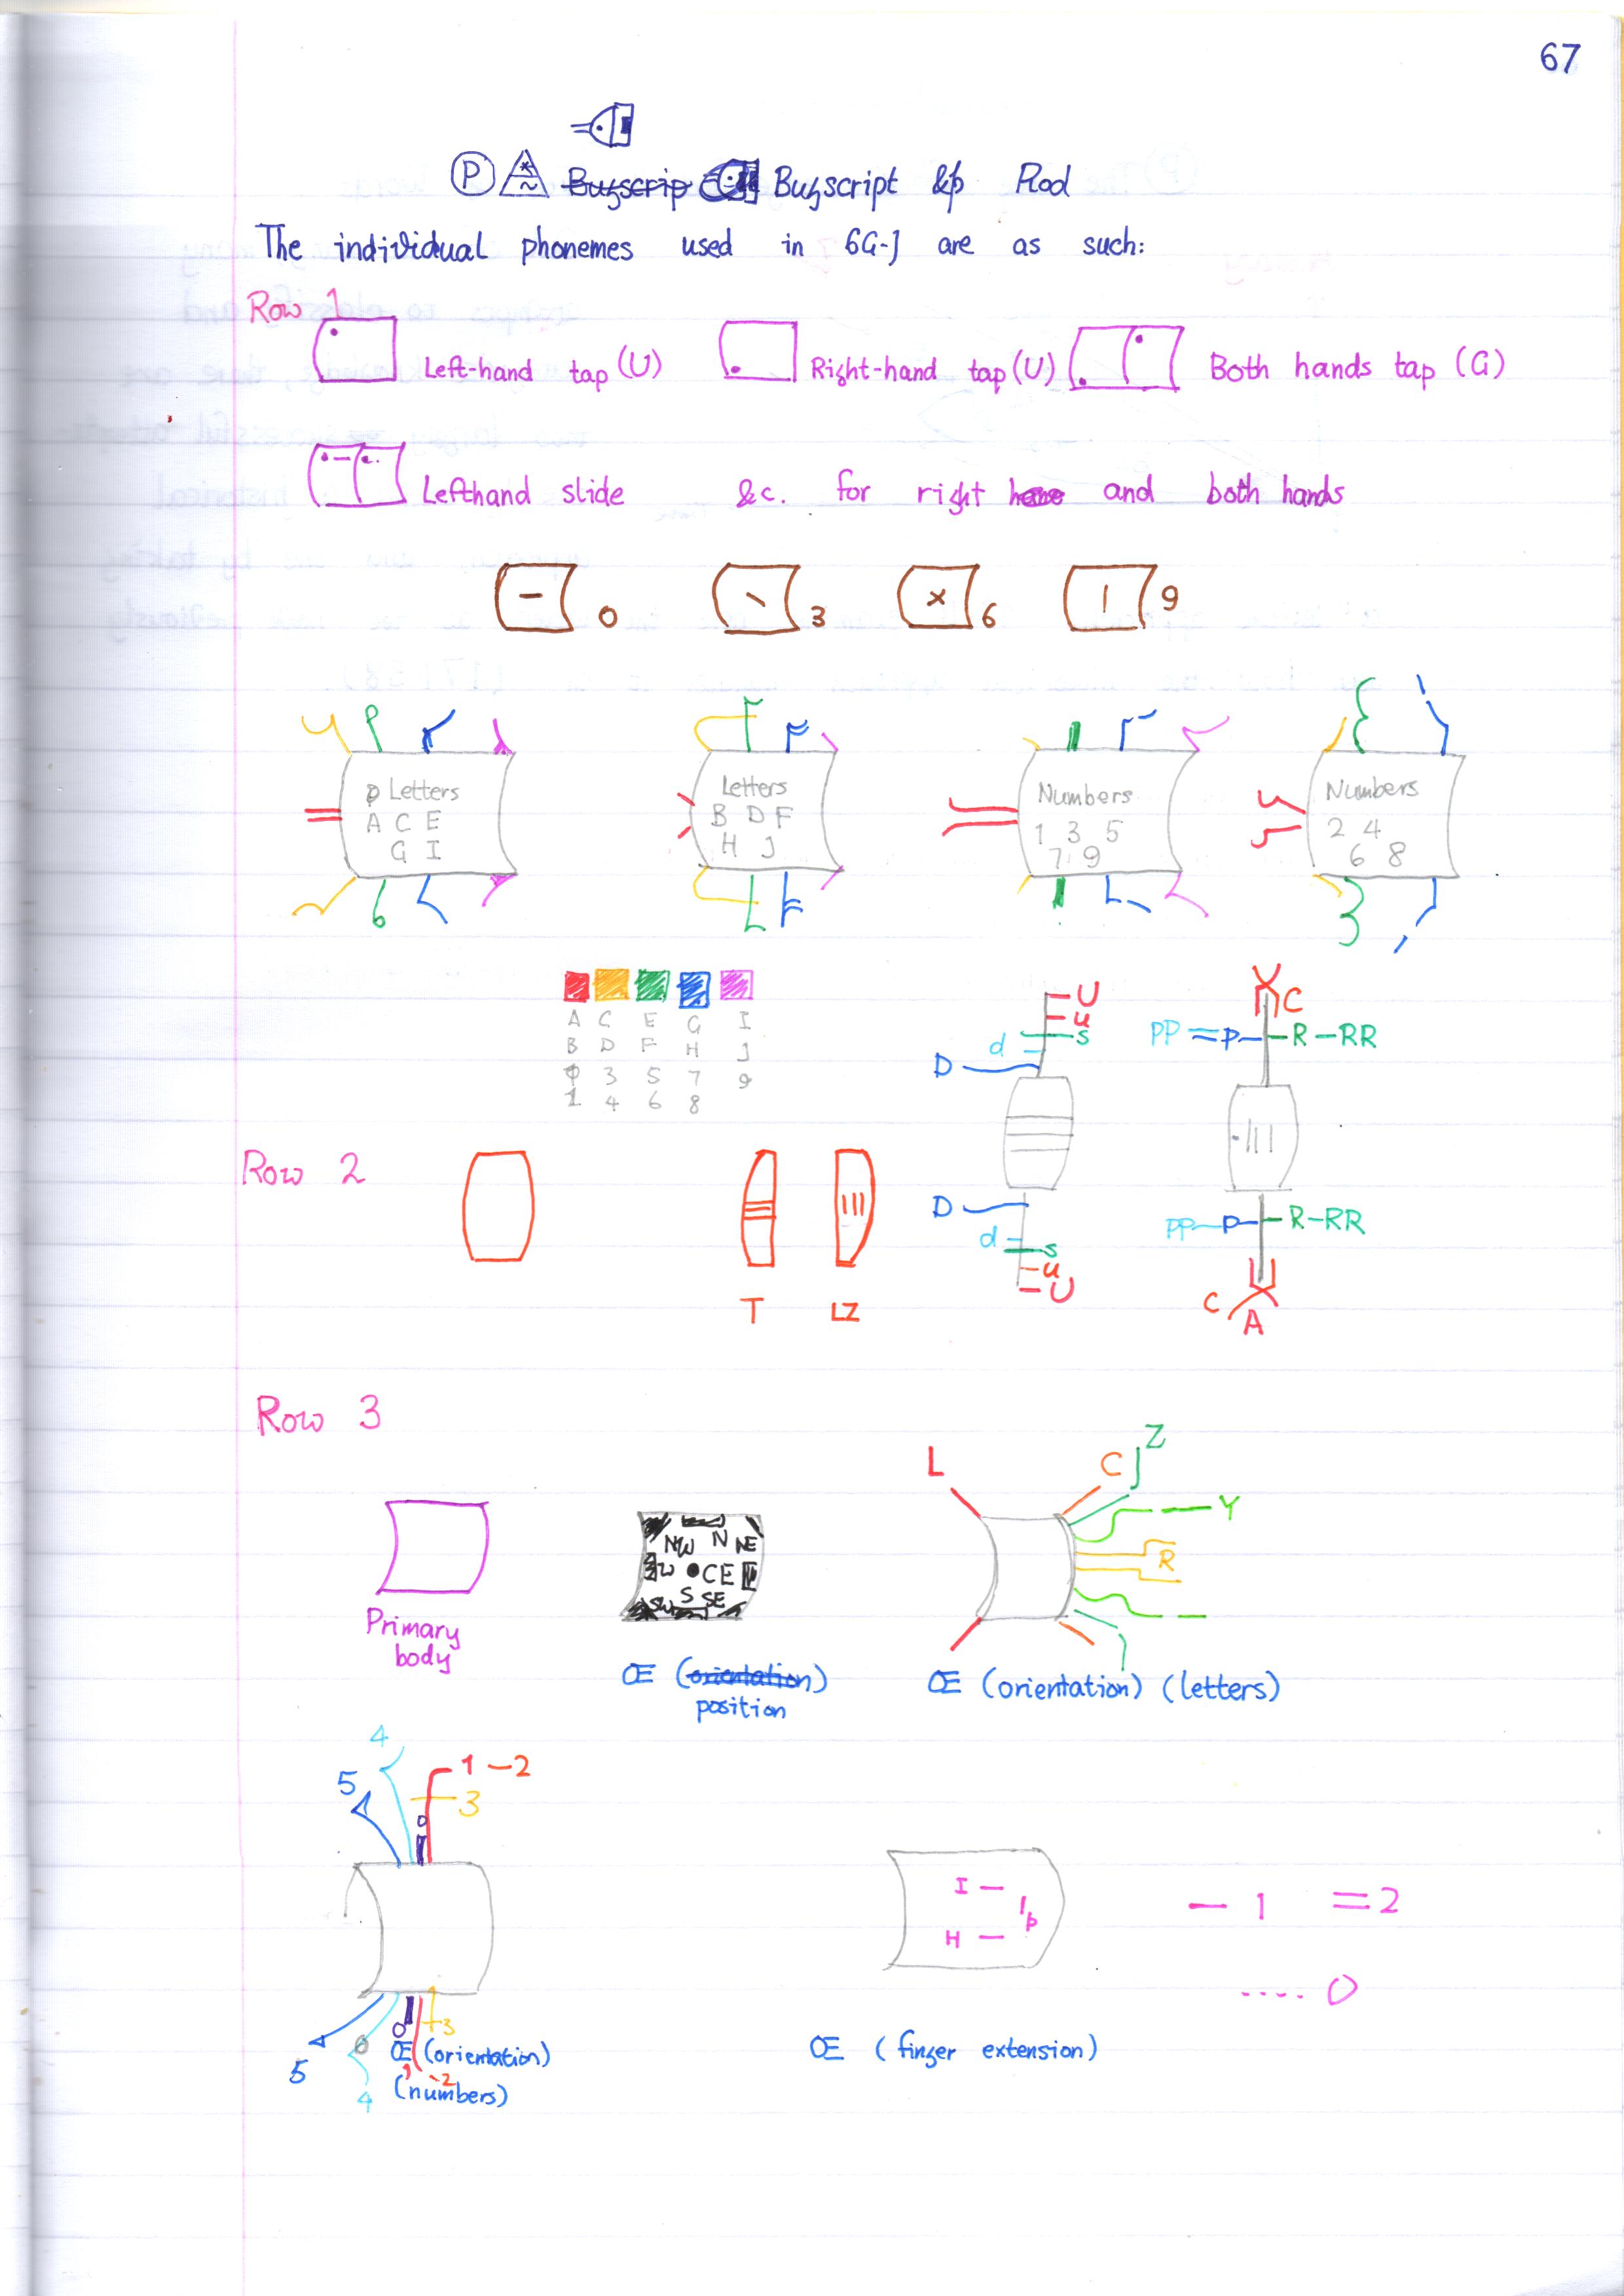 67
P Buyscrip Buyscript &p Rod
The individual phonemes used in 6G-J are as such:
Row 1
Left-hand tap (U) Right-hand tap (U) Both hands tap (G)
Lefthand slide &c. for right and both hands
0 3 6 9
Letters Letters Numbers Numbers
A C E B D F 1 3 5 2 4
G I H J 7 9 6 8
A C E G I
B D F H J
3 5 7 9
1 4 6 8
U
u
s
d
D
C
PP P R RR
Row 2
D
d
s
u
U
PP P R RR
C
A
T LZ
Row 3
L C Z
Y
R
NW N NE
W C E
SW S SE
Primary
body
Œ (orientation) Œ (orientation) (letters)
position
4
5
1 2
3
0
I
H
1 2
0
5
4
0
3
1 2
Œ (orientation) Œ (finger extension)
(numbers)